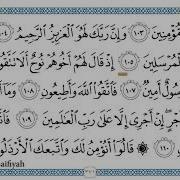 ؤْمِنِينَ ١٠٣ وَإِنَّ رَبَّكَ لَهُوَ ٱلْعَزِيزُ ٱلرَّحِيمُ ١٠٤
لْمُرْسَلِينَ ١٠٥ إِذْ قَالَ لَهُمْ أَخُوهُمْ نُوحٌ أَلَا تَتَّقُو
سُولٌ أَمِينٌ ١٠٧ فَٱتَّقُوا۟ ٱللَّهَ وَأَطِيعُونِ ١٠٨ وَمَآ
جْرٍ إِنْ أَجْرِىَ إِلَّا عَلَىٰ رَبِّ ٱلْعَـٰلَمِينَ ١٠٩ فَٱتَّ
١١٠ قَالُوٓا۟ أَنُؤْمِنُ لَكَ وَٱتَّبَعَكَ ٱلْأَرْذَلُو
aifiyah